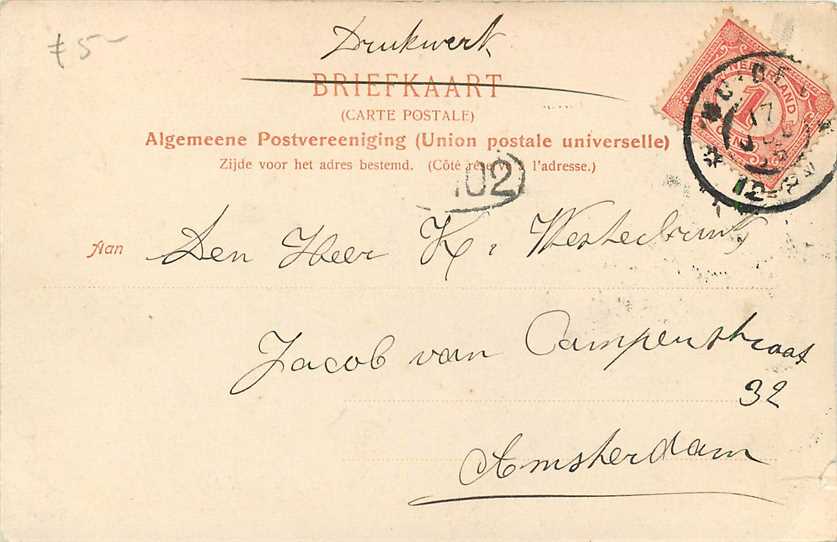 f 5-
Drukwerk
BRIEFKAART
(CARTE POSTALE)
Algemeene Postvereeniging (Union postale universelle)
Zijde voor het adres bestemd. (Côté rése l'adresse.)
102
NEDERLAND
1
17
12
Aan Den Heer K.
Jacob van Campenstraat
32
Amsterdam